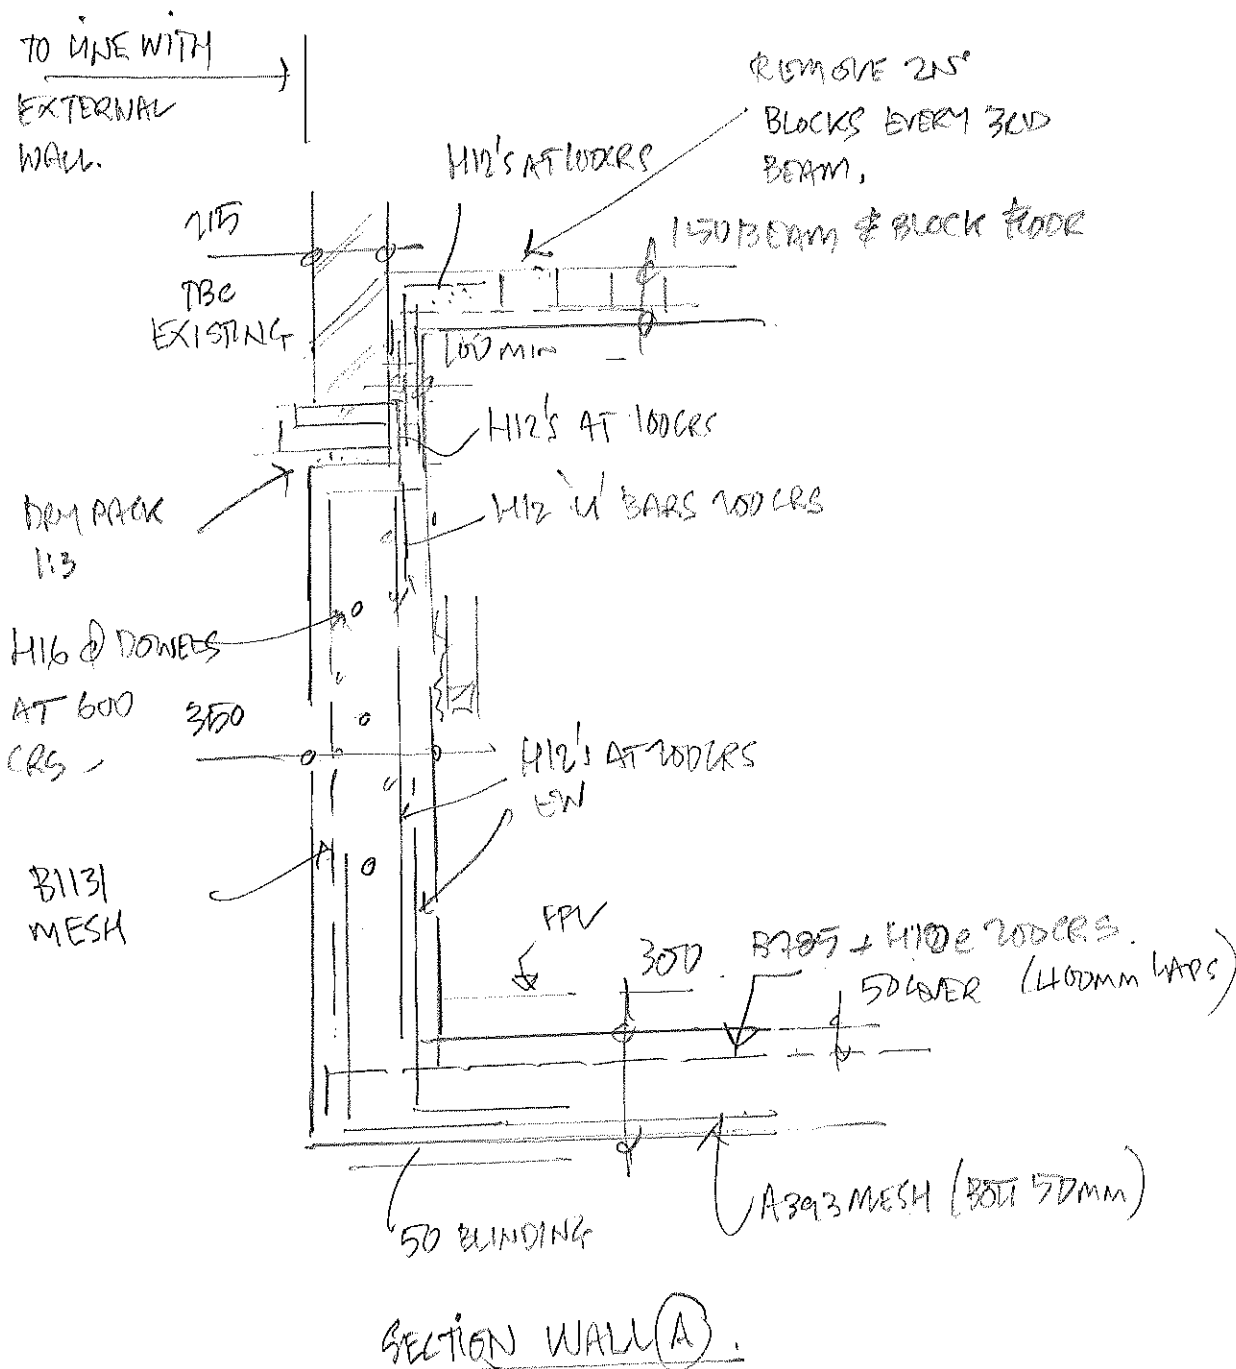 TO LINE WITH
EXTERNAL
WALL.
REMOVE 2NO
BLOCKS EVERY 3RD
BEAM.
H12'S AT 100CRS
150 BEAM & BLOCK FLOOR
215
TBC
EXISTING
100 MIN
H12'S AT 100CRS
H12 'U' BARS 200CRS
DRY PACK
1:3
H16 Φ DOWELS
AT 600
CRS
350
H12'S AT 200CRS
EW
B1131
MESH
300
B785 + H10@ 200CRS.
50 COVER (400MM LAPS)
A393 MESH (BOTT 50MM)
50 BLINDING
SECTION WALL A.